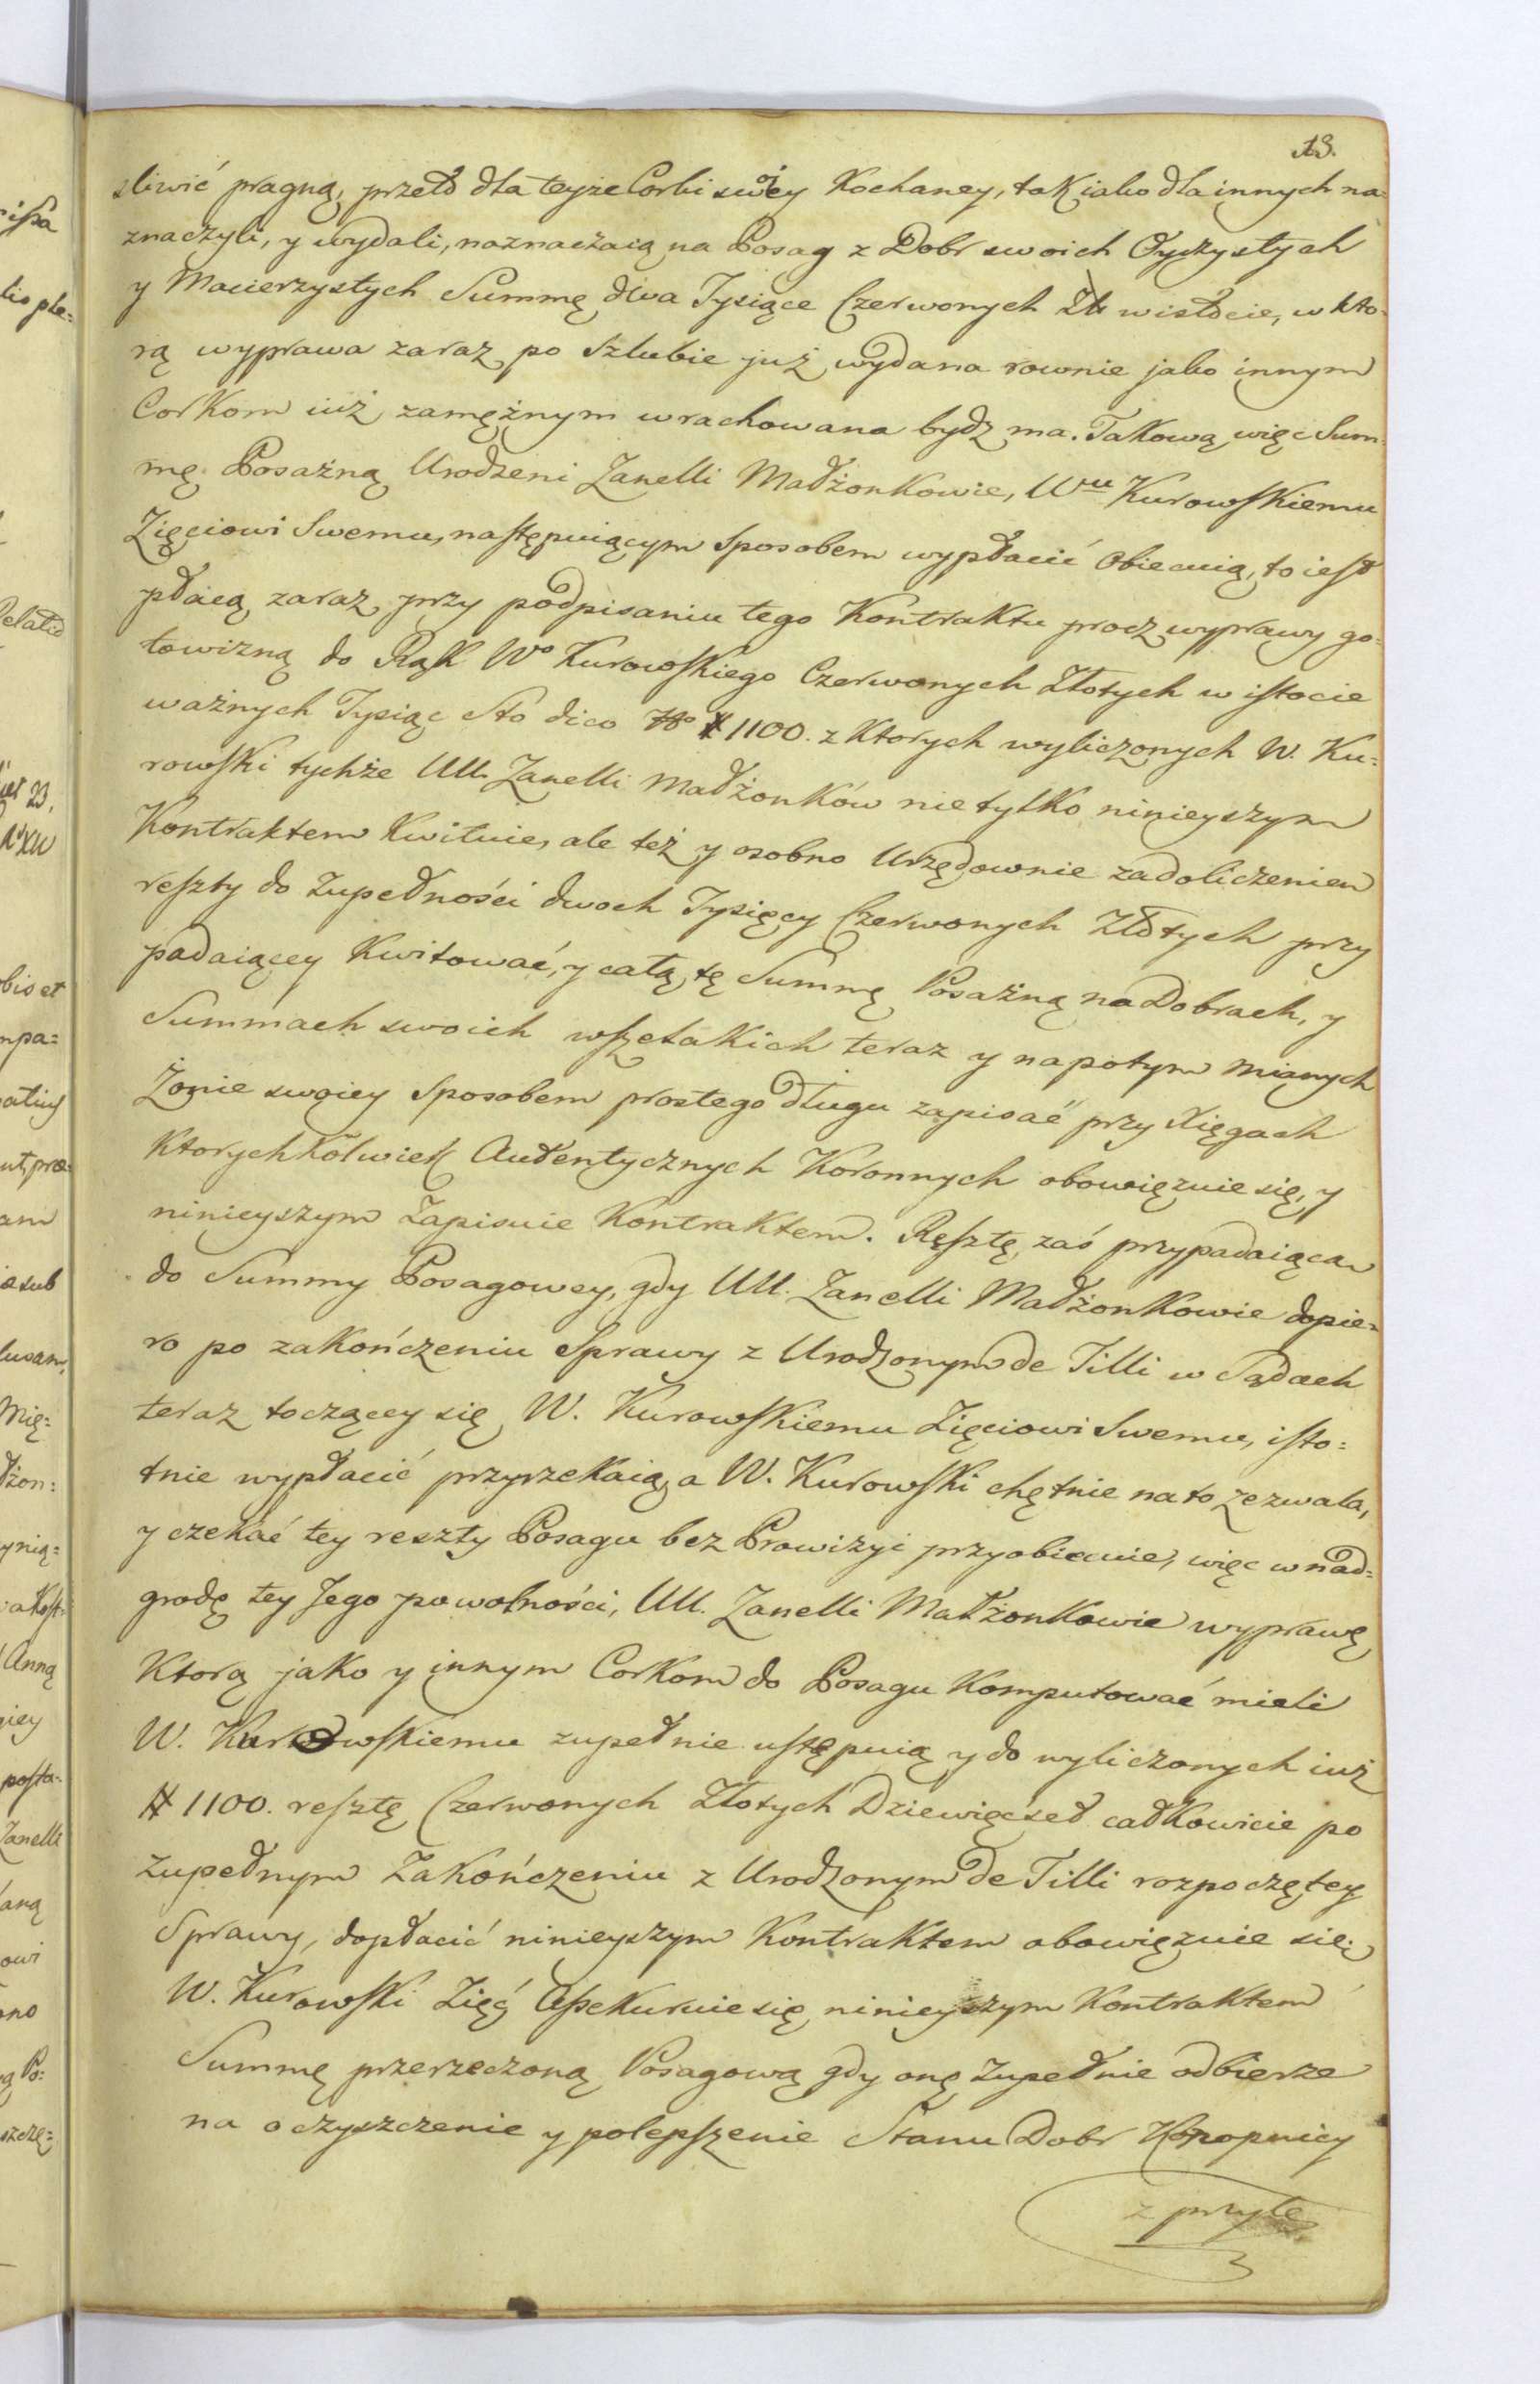 13.
sliwić pragną, przeto dla teyże Corki swoiey Kochaney, tak iako dla innych na=
znaczyli, y wydali, naznaczaią na Posag z Dobr swoich Oyczystych
y Macierzystych Summę dwa Tysiące Czerwonych Zł: wistocie, w kto=
rą wyprawa zaraz po Szlubie już wydana rownie jako innym
Corkom iuż zamężnym wrachowana bydz ma. Takową więc Sum=
mę Posażną Urodzeni Zanelli Małżonkowie, Wu Kurowskiemu
Zięciowi Swemu, następuiącym Sposobem wypłacić Obiecuią, to iest
płacą zaraz przy podpisaniu tego Kontraktu procz wyprawy go=
towizną do Rąk Wo Kurowskiego Czerwonych Złotych w istocie
ważnych Tysiąc Sto dico # 1100. z Ktorych wyliczonych W. Ku=
rowski tychże UU. Zanelli Małżonków nie tylko ninieyszym
Kontraktem Kwituie, ale też y osobno Urzędownie za doliczeniem
reszty do Zupełności dwoch Tysięcy Czerwonych Złotych przy
padaiącey Kwitować, y całą tę Summę Posażną na Dobrach, y
Summach swoich wszelakich teraz y napotym mianych
Żonie swoiey Sposobem prostego długu zapisać przy Xięgach
Ktorychkolwiek Autentycznych Koronnych obowięzuie się, y
ninieyszym Zapisuie Kontraktem. Resztę zaś przypadaiącą
do Summy Posagowey, gdy UU. Zanelli Małżonkowie dopie=
ro po zakończeniu Sprawy z Urodzonym de Tilli w Sądach
teraz toczącey się W. Kurowskiemu Zięciowi Swemu, isto=
tnie wypłacić przyrzekaią, a W. Kurowski chętnie na to zezwala,
y czekać tey reszty Posagu bez Prowizyi przyobiecuie, więc w nad=
grodę tey Jego powolności, UU. Zanelli Małżonkowie wyprawę,
Ktorą jako y innym Corkom do Posagu Komputować mieli
W. Kurowskiemu zupełnie ustępuią y do wyliczonych iuż
# 1100. resztę Czerwonych Złotych Dziewięćset całkowicie po
Zupełnym Zakończeniu z Urodzonym de Tilli rozpoczętey
Sprawy, dopłacić ninieyszym Kontraktem obowięzuie się;
W. Kurowski Zięć Assekuruie się ninieyszym Kontraktem
Summę przerzeczoną Posagową gdy onę Zupełnie odbierze
na oczyszczenie y polepszenie Stanu Dobr Konopnicy
z przyle